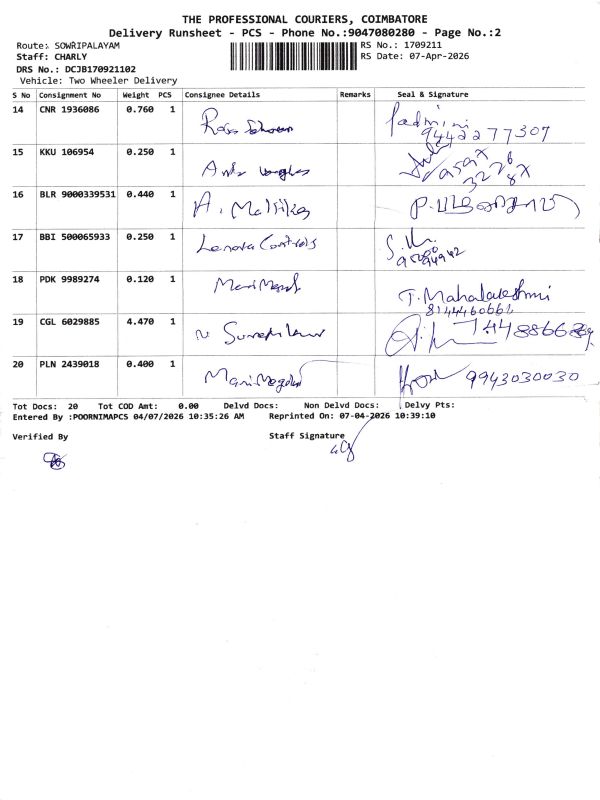 THE PROFESSIONAL COURIERS, COIMBATORE
Delivery Runsheet - PCS - Phone No.:9047080280 - Page No.:2
Route: SOWRIPALAYAM
Staff: CHARLY
DRS No.: DCJB170921102
Vehicle: Two Wheeler Delivery
RS No.: 1709211
RS Date: 07-Apr-2026
S No Consignment No Weight PCS Consignee Details Remarks Seal & Signature
14 CNR 1936086 0.760 1 Padmini
9442277307
15 KKU 106954 0.250 1
16 BLR 9000339531 0.440 1 A. Mallika
17 BBI 500065933 0.250 1 Lenova Controls
18 PDK 9989274 0.120 1 T. Mahalakshmi
8144460661
19 CGL 6029885 4.470 1
20 PLN 2439018 0.400 1 9943030030
Tot Docs: 20 Tot COD Amt: 0.00 Delvd Docs: Non Delvd Docs: Delvy Pts:
Entered By :POORNIMAPCS 04/07/2026 10:35:26 AM Reprinted On: 07-04-2026 10:39:10
Verified By Staff Signature